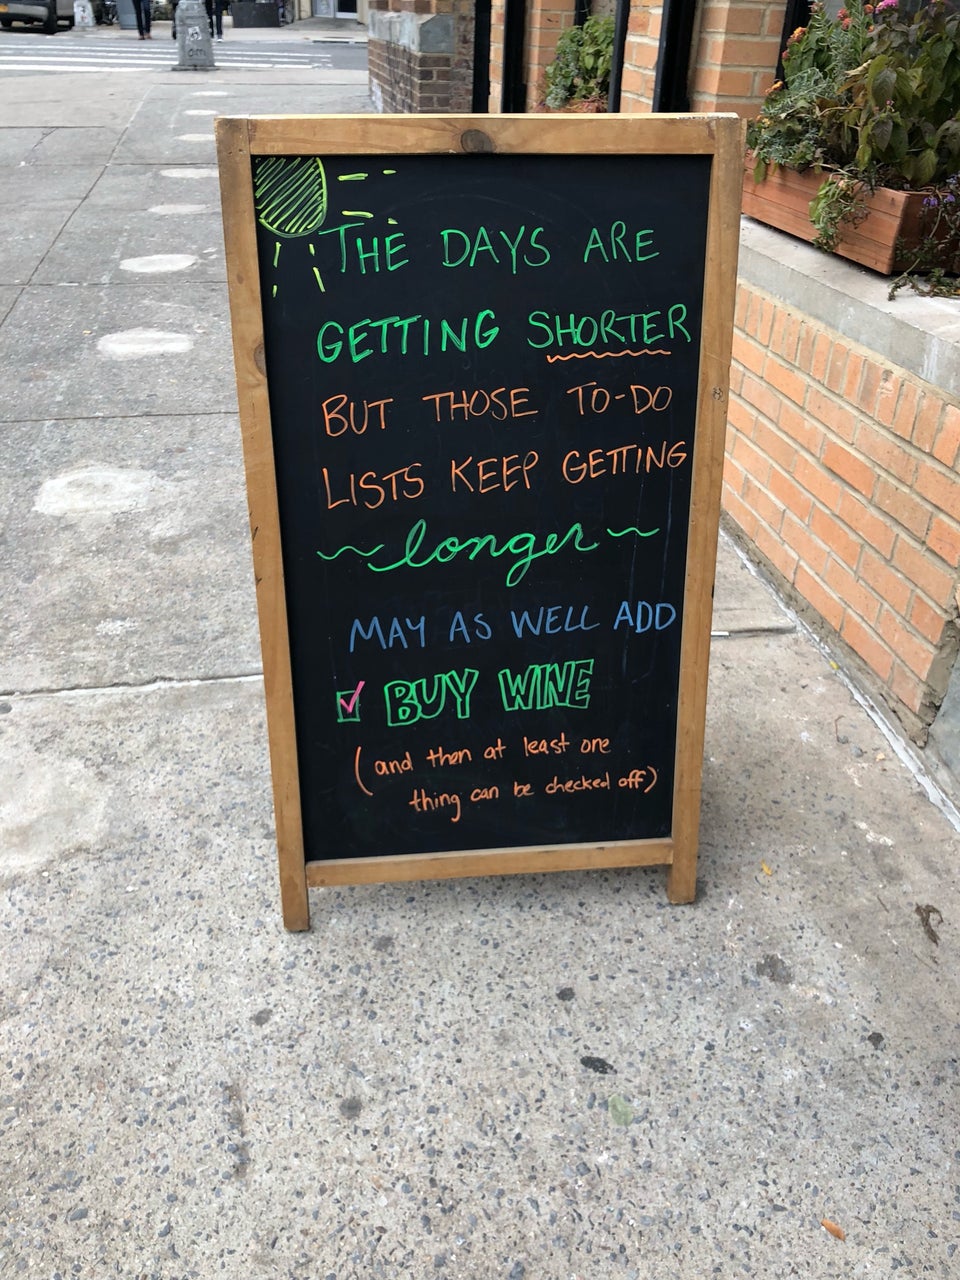 THE DAYS ARE
GETTING SHORTER
BUT THOSE TO-DO
LISTS KEEP GETTING
~longer~
MAY AS WELL ADD
☑ BUY WINE
(and then at least one
thing can be checked off)